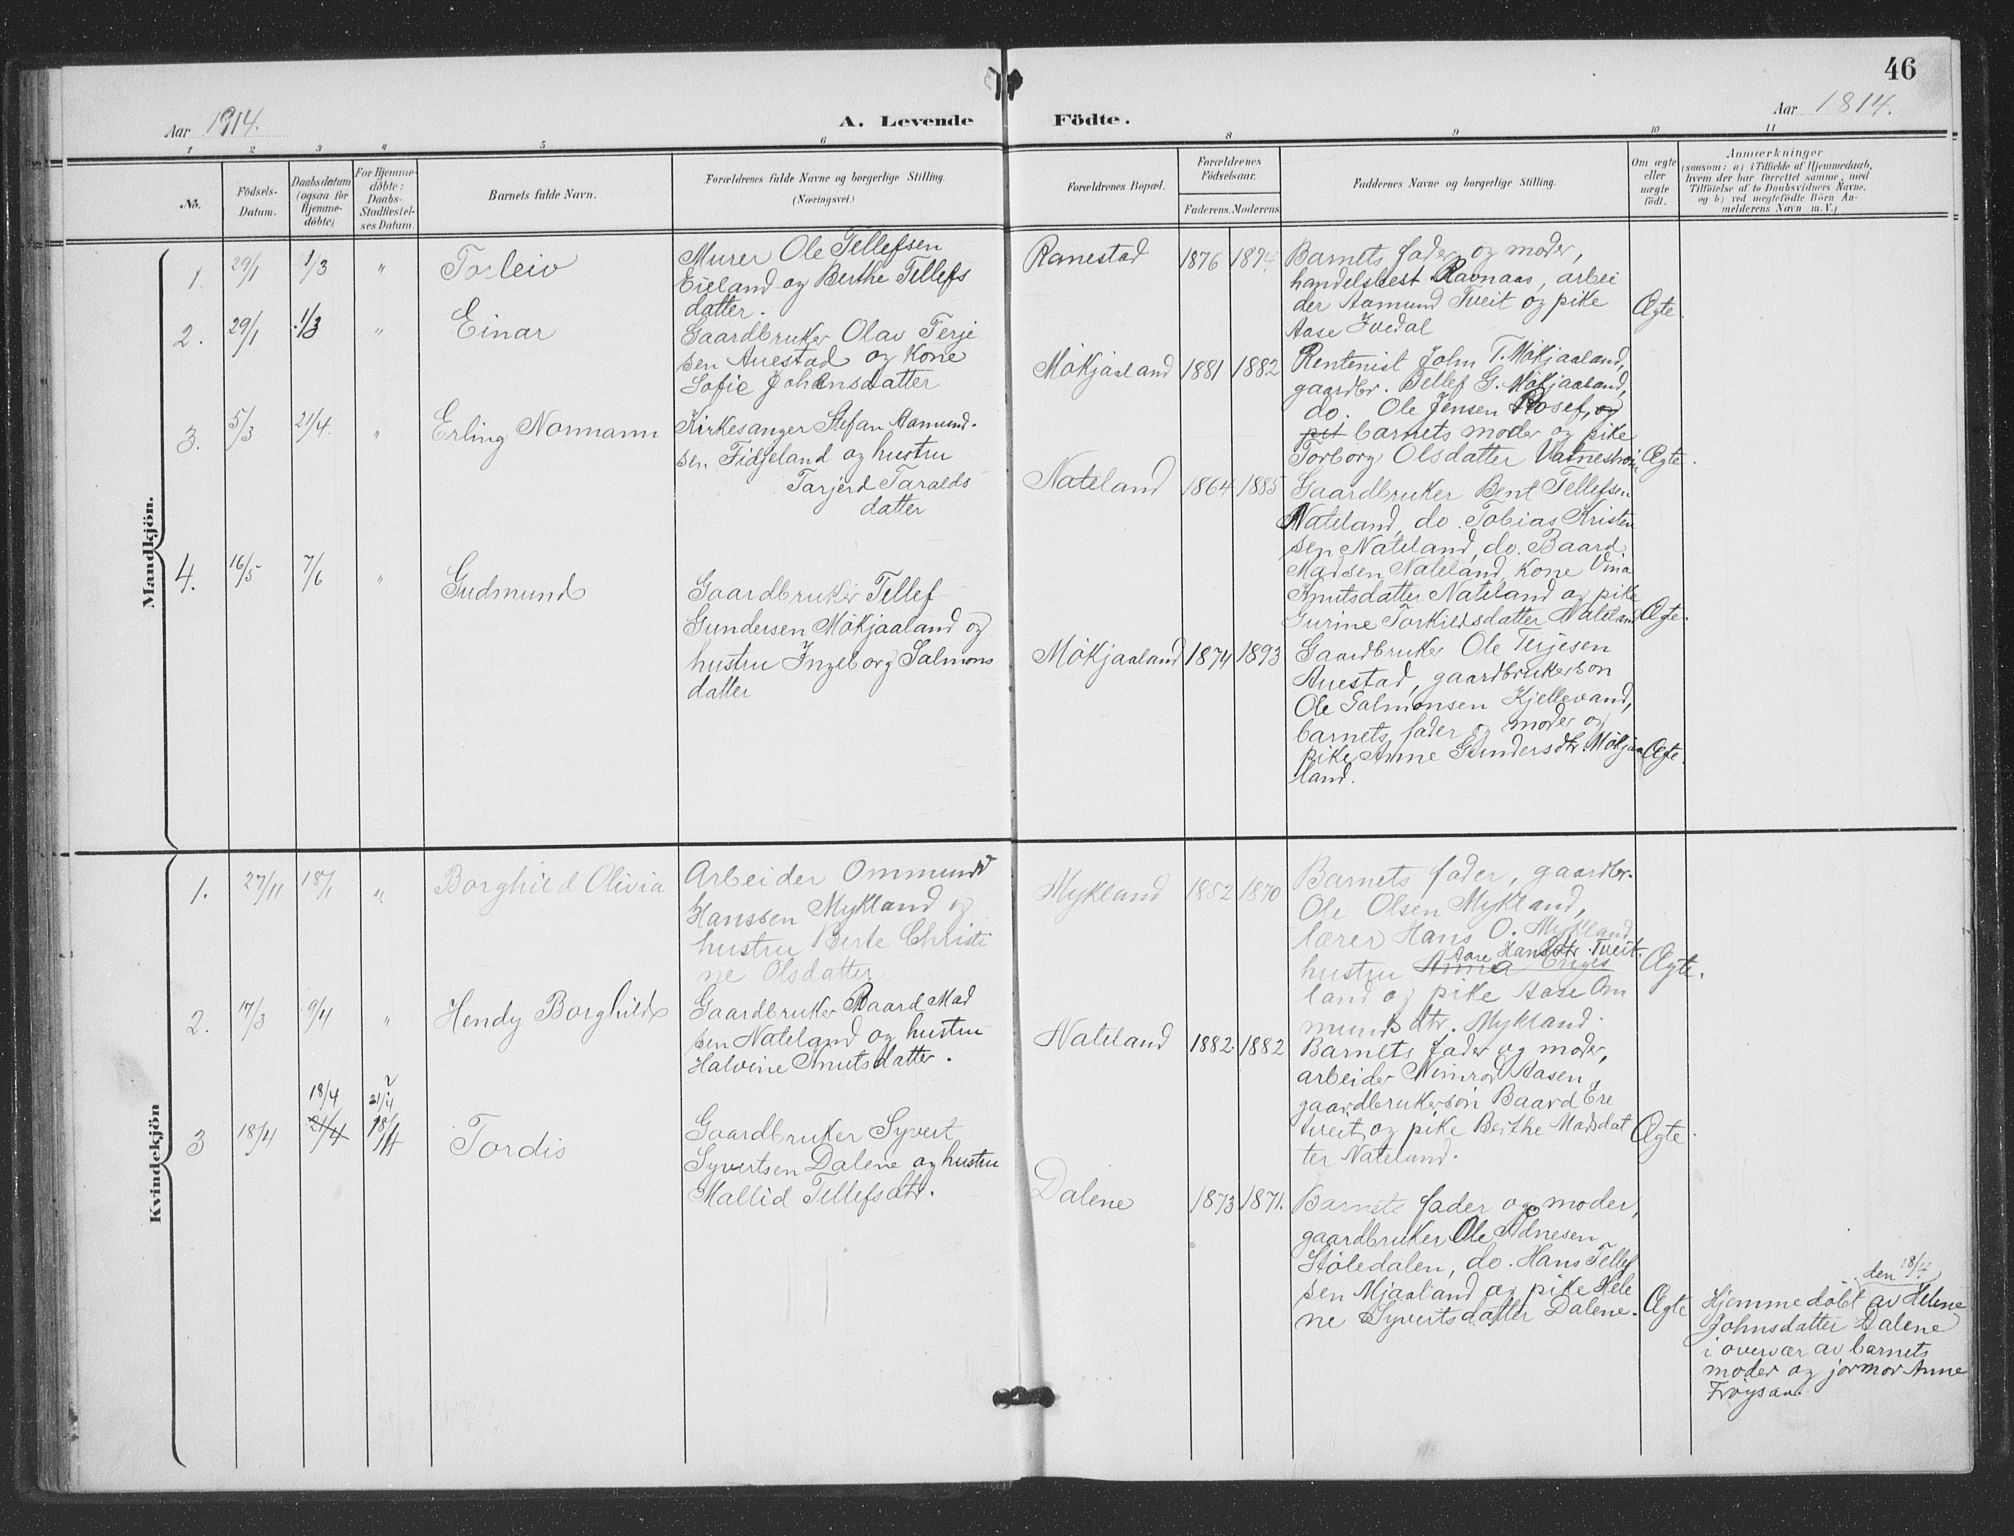 46
Aar 1914.
A. Levende Födte.
Aar 1814.
1 2 3 4 5 6 8 9 10 11
No.
Födsels-
Datum.
Daabsdatum
(ogsaa for
Hjemme-
döbte)
For Hjemme-
döbte:
Daabs-
Stadfæstel-
ses Datum.
Barnets fulde Navn.
Forældrenes fulde Navne og borgerlige Stilling.
(Næringsvei.)
Forældrenes Bopæl.
Forældrenes
Födselsaar.
Faderens. Moderens.
Faddernes Navne og borgerlige Stilling.
Om ægte
eller
uægte
födt.
Anmærkninger
(saasom: a) i Tilfælde af Hjemmedaab,
hvem der har forrettet samme, med
Tilföielse af to Daabsvidners Navne.
og b) ved uegtefödte Börn An-
melderens Navn m. V.)
Mandkjön.
1. 29/1 1/3 " Torleiv
Murer Ole Tellefsen
Eieland og Berthe Tellefs
datter.
Ranestad 1876 1894
Barnets fader og moder,
handelsbest Ravnaas, arbei
der Aamund Tveit og pike
Aase Ivedal
Ægte
2. 29/1 1/3 " Einar
Gaardbruker Olav Terje
sen Auestad og Kone
Sofie Johansdatter
Mökjaaland 1881 1882
Rentenist John T. Mökjaaland,
gaardbr. Tellef G. Mökjaaland,
do. Ole Jensen Rosef, og
pit barnets moder og pike
Torborg Olsdatter
Ægte.
3. 5/3 21/4. " Erling Normann
Kirkesanger Stefan Aamund-
sen Fidjeland og hustru
Tarjerd Taralds
datter
Nateland 1864 1885
Gaardbruker Bent Tellefsen
Nateland, do. Tobias Kristen
sen Nateland, do. Baard
Madsen Nateland, Kone Vina
Knutsdatter Nateland og pike
Gurine Torkildsdatter Nateland
Ægte.
4. 16/5 7/6 " Gudmund
Gaardbruker Tellef
Gundersen Mökjaaland og
hustru Ingeborg Salmons
datter
Mökjaaland 1874 1893
Gaardbruker Ole Terjesen
Auestad, gaardbrukersön
Ole Salmonsen Kjellevand,
barnets fader og moder og
pike Anne Gundersdtr Mökjaa
land.
Ægte.
Kvindekjön
1. 27/11 18/1 " Borghild Olivia
Arbeider Ommund
Hanssen Mykland og
hustru Berte Christi
ne Olsdatter
Mykland 1852 1870
Barnets fader, gaardbr.
Ole Olsen Mykland,
lærer Hans O. Mykland
Aase Hansdtr Tveit.
hustru Anna
land og pike Aase Om
munds dtr. Mykland.
Ægte.
2. 17/3 9/4 " Hendy Borghild
Gaardbruker Baard Mad
sen Nateland og hustru
Halvine Knutsdatter.
Nateland 1882. 1882
Barnets fader og moder,
arbeider Nimrod Aasen,
gaardbrukersön Baard Ere
tveit og pike Berthe Madsdat
ter Nateland.
Ægte.
18/4 21/4
3 18/4 21/4 18/4 Tordis
Gaardbruker Syvert
Syvertsen Dalene og hustru
Mallid Tellefsdtr.
Dalene 1873 1871.
Barnets fader og moder,
gaardbruker Ole Ådnesen
Stöledalen, do. Hans Tellef
sen Mjaaland og pike Hele
ne Syvertsdatter Dalene.
Ægte
den 18/4
Hjemmedöbt av Helene
Johnsdatter Dalene
i overvær av barnets
moder og jormor Anne
Fröysaa.